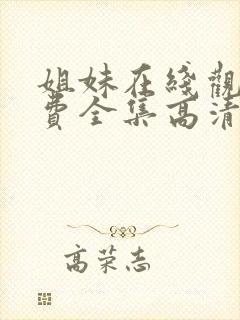 姐妹在綫觀
費全集高清
高荣志